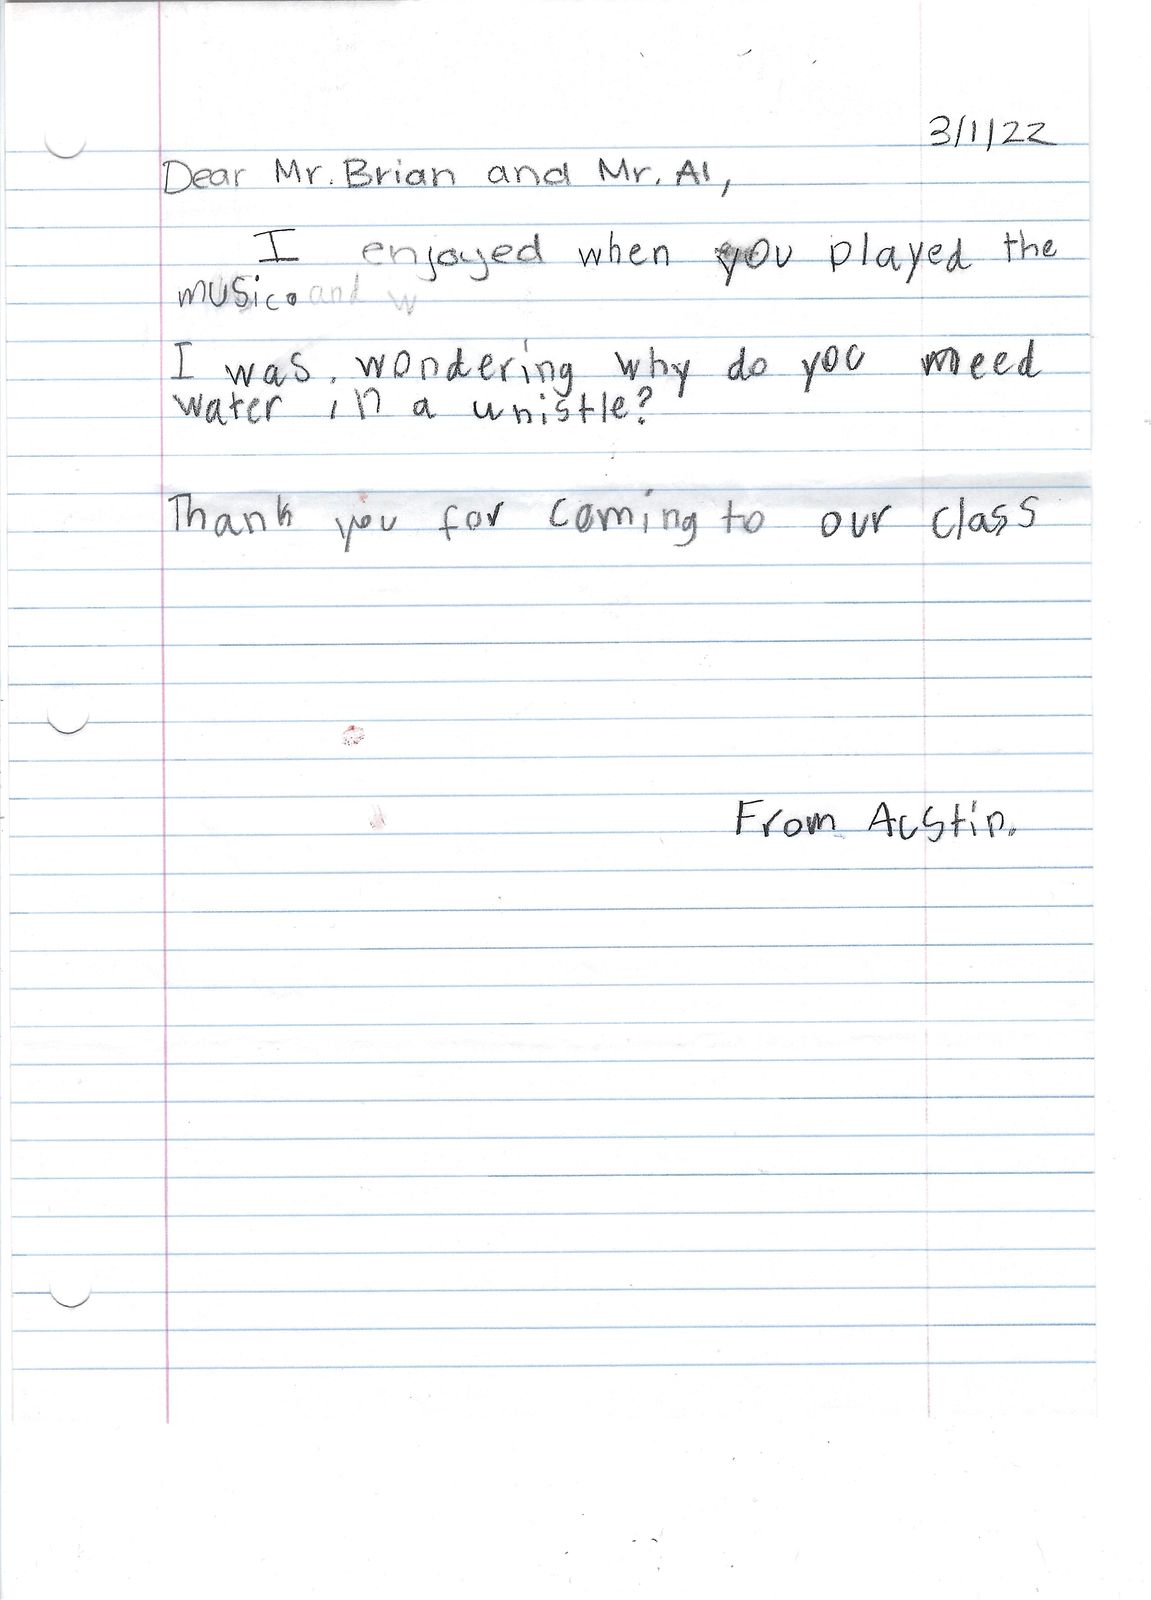 3/1/22
Dear Mr. Brian and Mr. Al,
I enjoyed when you played the
music. and w
I was. wondering why do you need
water in a whistle?
Thank you for coming to our class
From Austin.